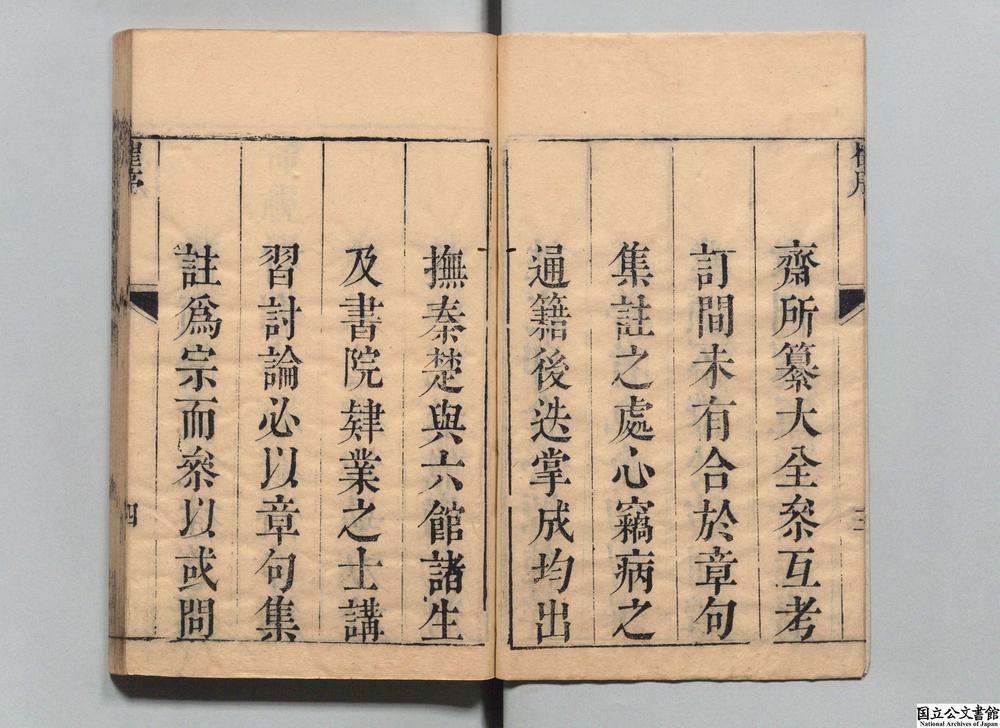 齋所纂大全叅互考
訂間未有合於章句
集註之處心竊病之
通籍後迭掌成均出
撫秦楚與六館諸生
及書院肄業之士講
習討論必以章句集
註爲宗而叅以或問
三
四
国立公文書館
National Archives of Japan